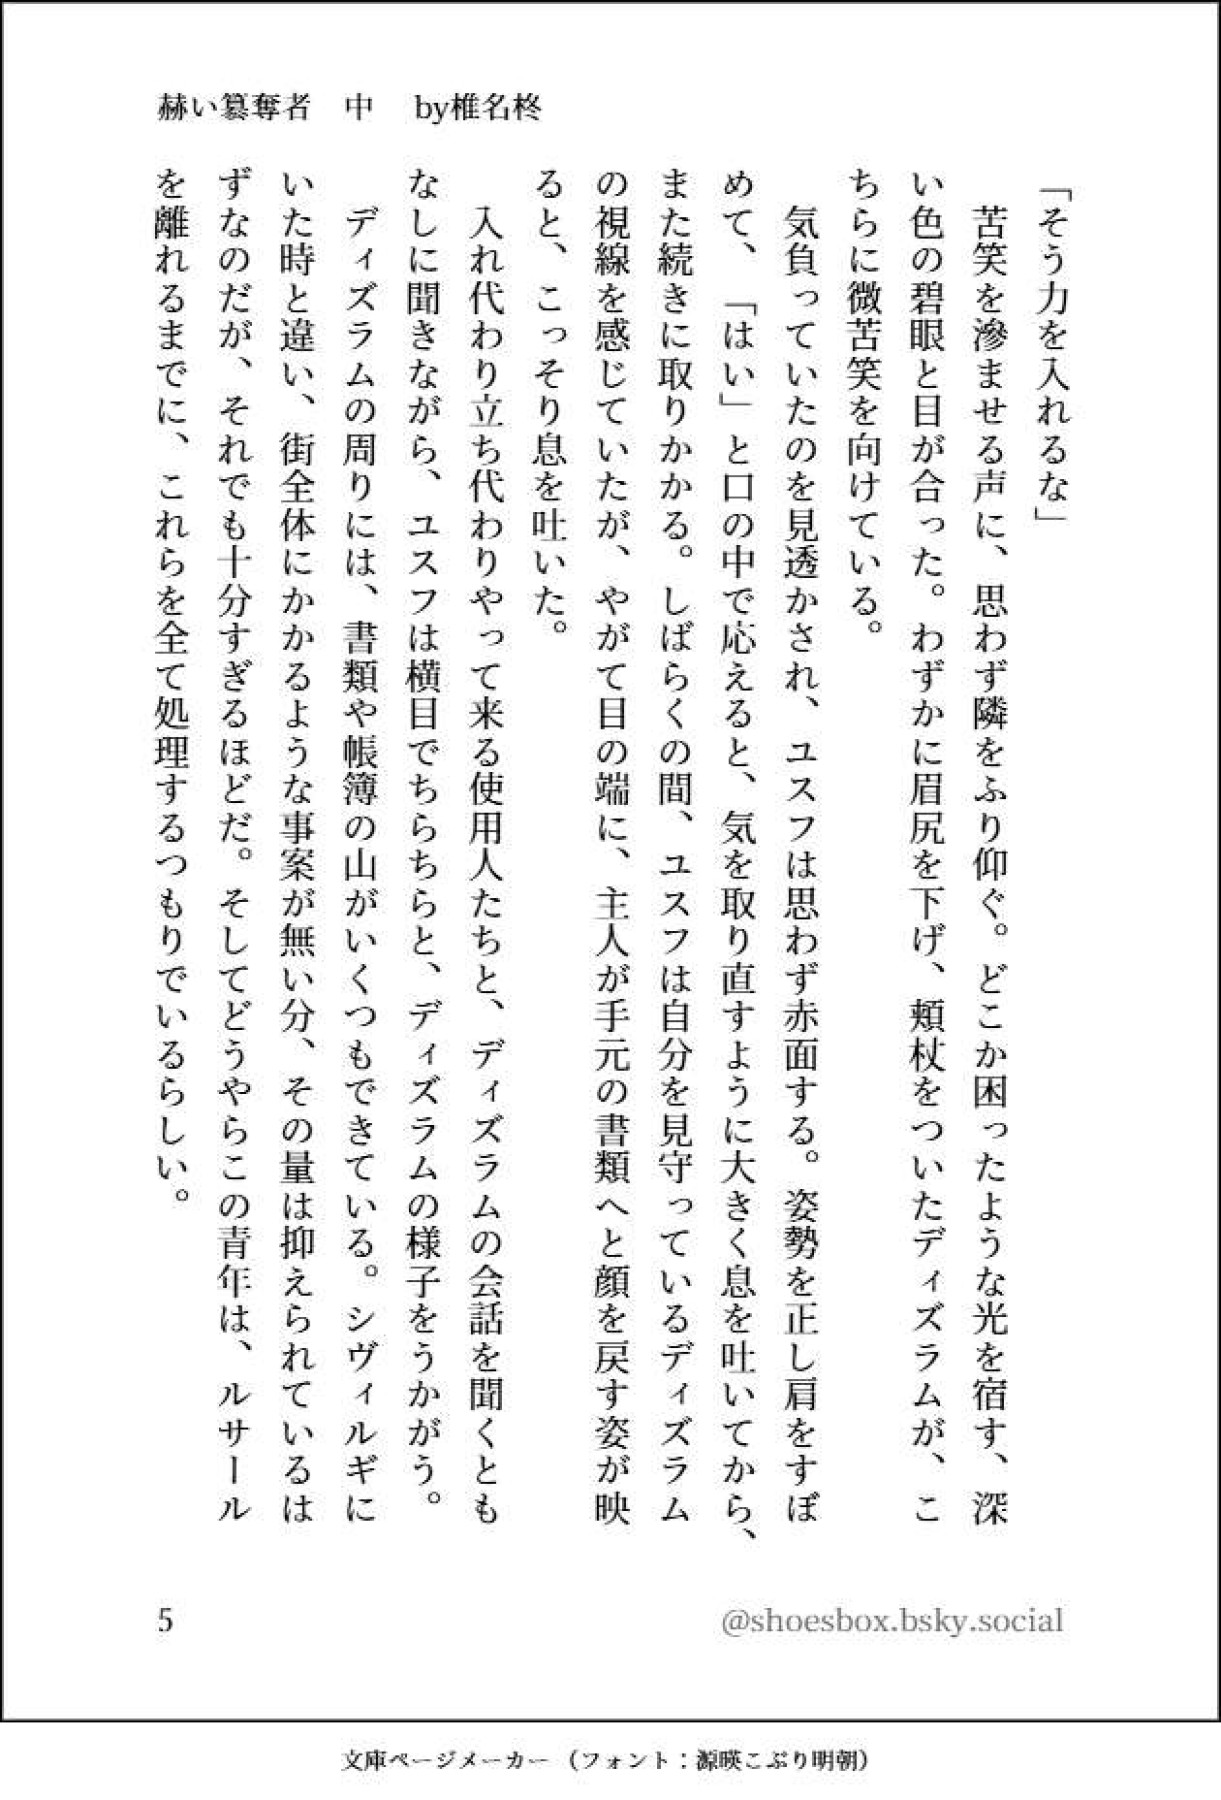 赫い簒奪者　中　by椎名柊
「そう力を入れるな」
　苦笑を滲ませる声に、思わず隣をふり仰ぐ。どこか困ったような光を宿す、深
い色の碧眼と目が合った。わずかに眉尻を下げ、頬杖をついたディズラムが、こ
ちらに微苦笑を向けている。
　気負っていたのを見透かされ、ユスフは思わず赤面する。姿勢を正し肩をすぼ
めて、「はい」と口の中で応えると、気を取り直すように大きく息を吐いてから、
また続きに取りかかる。しばらくの間、ユスフは自分を見守っているディズラム
の視線を感じていたが、やがて目の端に、主人が手元の書類へと顔を戻す姿が映
ると、こっそり息を吐いた。
　入れ代わり立ち代わりやって来る使用人たちと、ディズラムの会話を聞くとも
なしに聞きながら、ユスフは横目でちらちらと、ディズラムの様子をうかがう。
　ディズラムの周りには、書類や帳簿の山がいくつもできている。シヴィルギに
いた時と違い、街全体にかかるような事案が無い分、その量は抑えられているは
ずなのだが、それでも十分すぎるほどだ。そしてどうやらこの青年は、ルサール
を離れるまでに、これらを全て処理するつもりでいるらしい。
5
@shoesbox.bsky.social
文庫ページメーカー（フォント：源暎こぶり明朝）